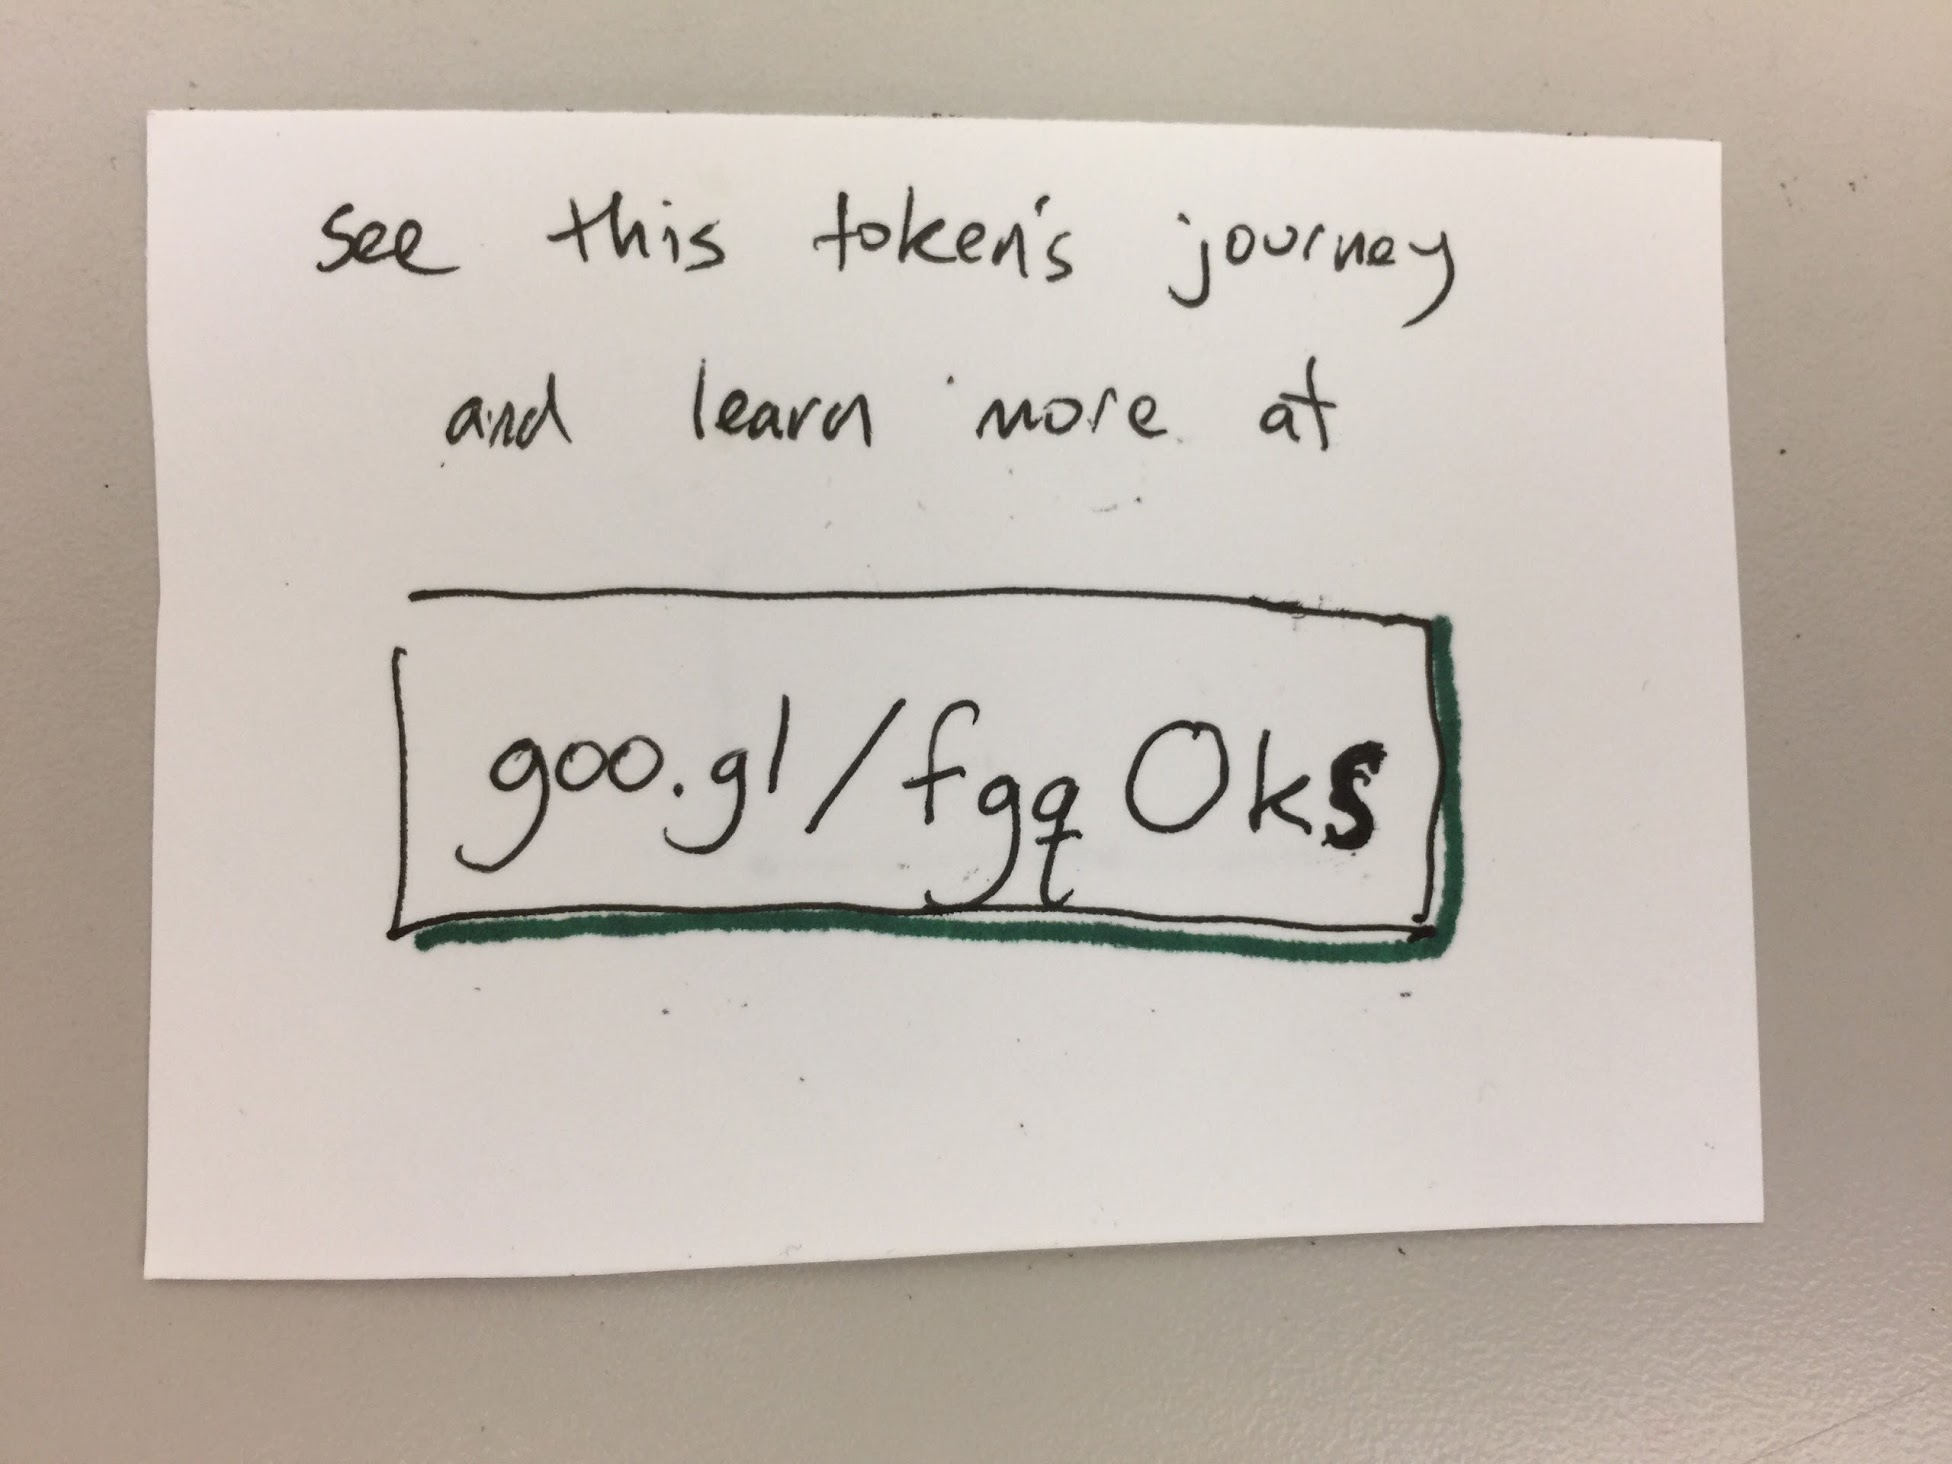 see this token's journey
and learn more at
goo.gl/fgqOks